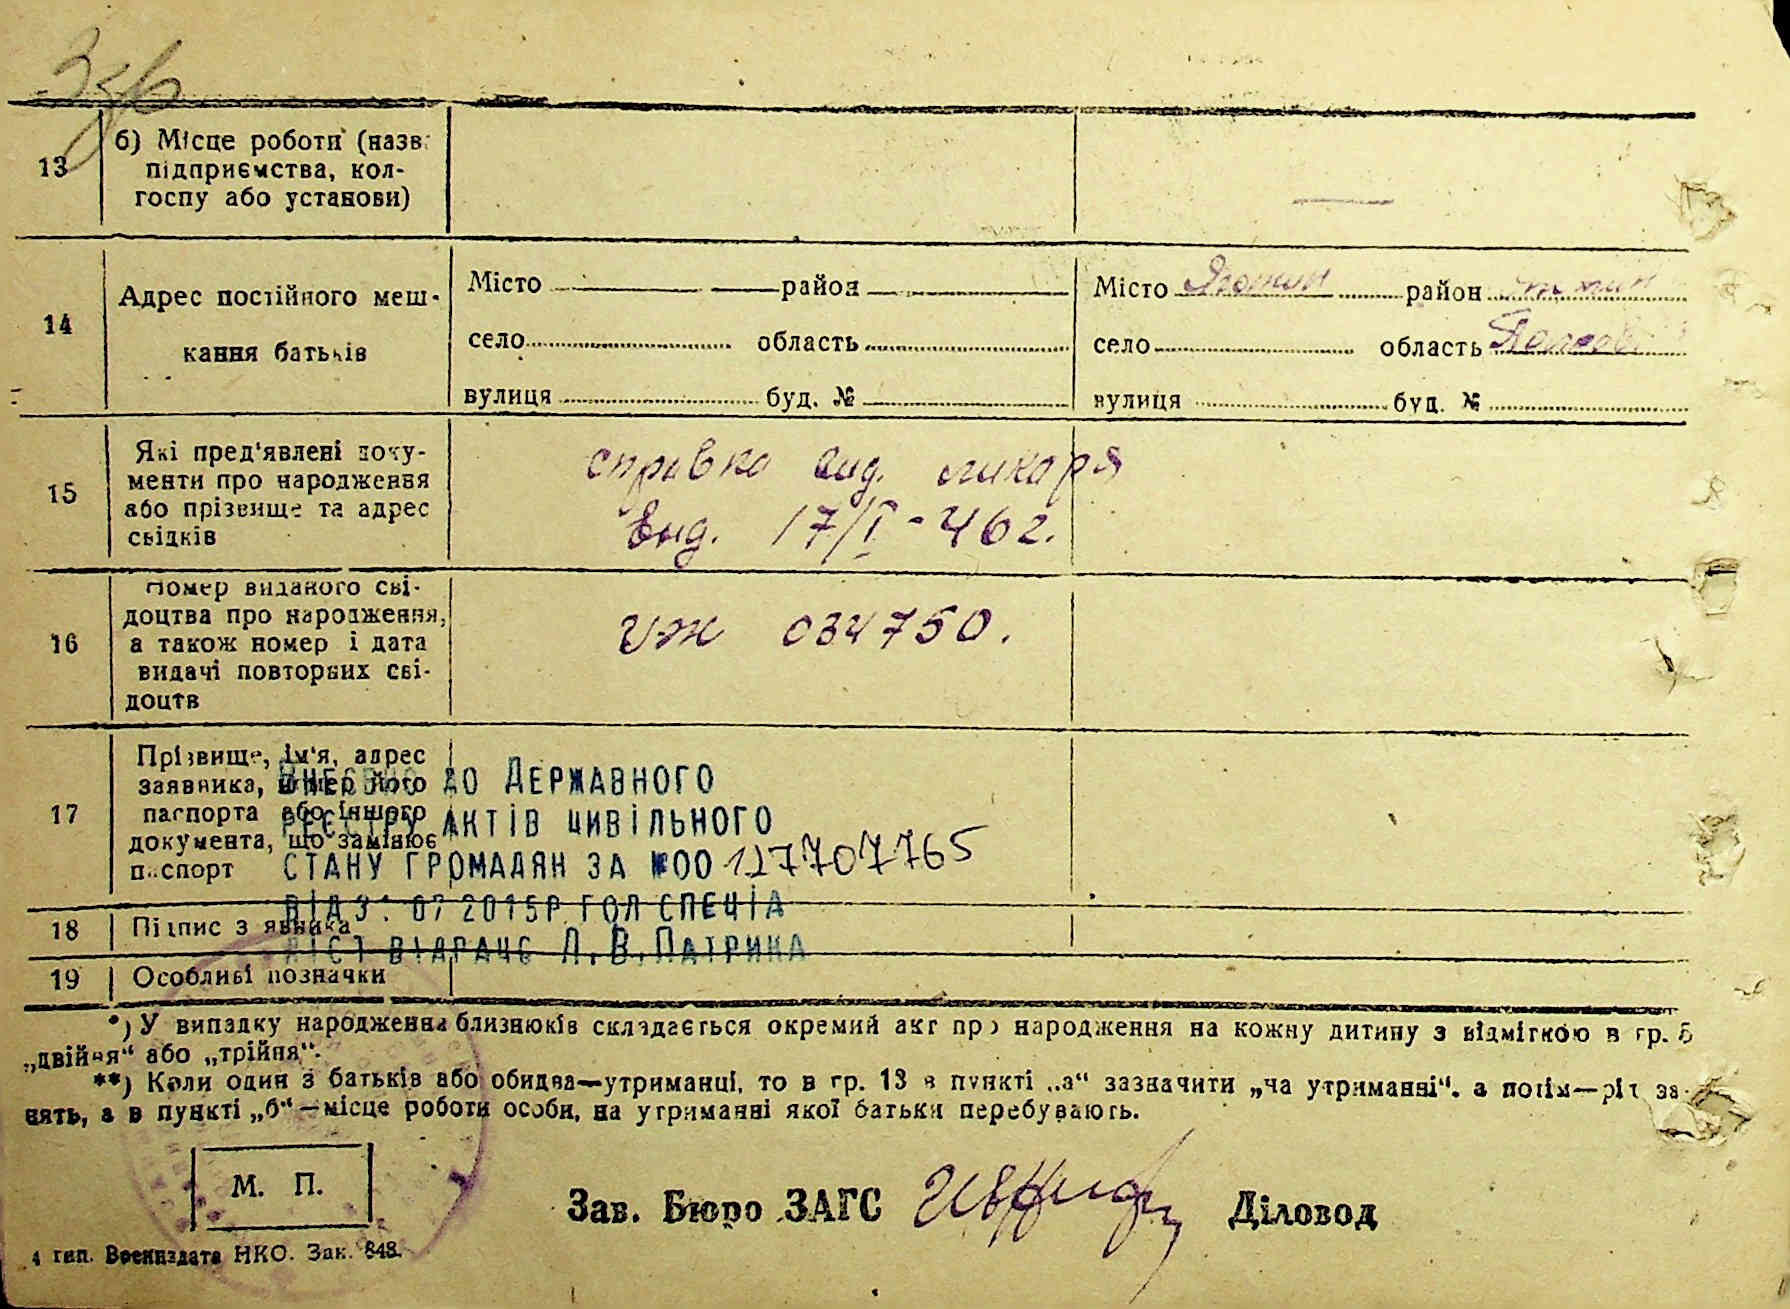 13
б) Місце роботи (назв.
підприємства, кол-
госпу або установи)
14
Адрес постійного меш-
кання батьків
Місто район
село область
вулиця буд. №
Місто Яготин район
село область
вулиця буд. №
15
Які пред'явлені доку-
менти про народження
або прізвище та адрес
свідків
справка вид. ликаря
вид. 17/I-46 г.
16
Номер виданого сві-
доцтва про народження,
а також номер і дата
видачі повторних сві-
доцтв
034750.
17
Прізвище, ім'я, адрес
заявника, номер його
паспорта або іншого
документа, що замінює
паспорт
Внесено до Державного
реєстру актів цивільного
стану громадян за №00127707765
від 07 2015р. гол спеціа
ліст відрацс Л.В.Патрика
18
Підпис заявника
19
Особливі позначки
*) У випадку народження близнюків складається окремий акт про народження на кожну дитину з відміткою в гр. 5
„двійня“ або „трійня“.
**) Коли один з батьків або обидва—утриманці, то в гр. 13 в пункті „а“ зазначити „на утриманні“, а потім—рід за-
нять, а в пункті „б“—місце роботи особи, на утриманні якої батьки перебувають.
М. П.
Зав. Бюро ЗАГС Діловод
4 тип. Воениздата НКО. Зак. 848.